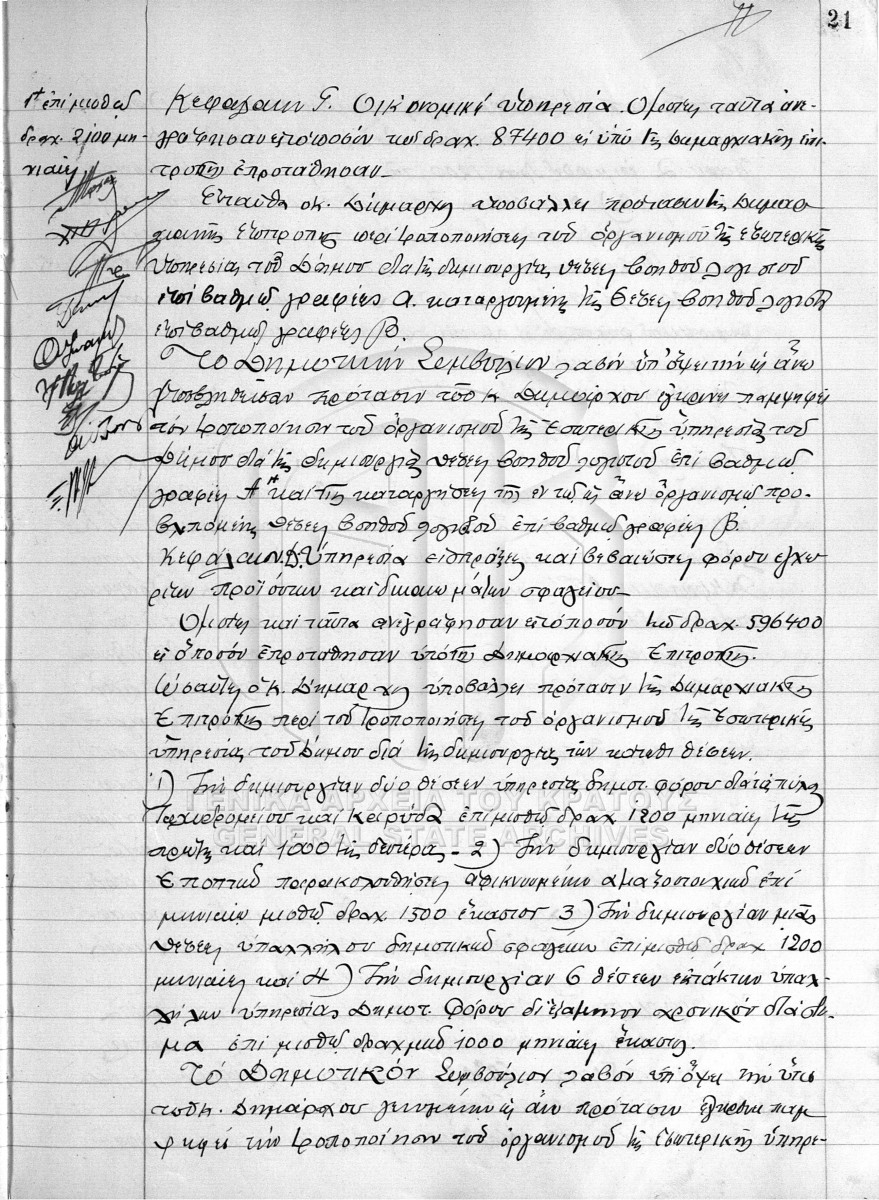 21
1) ἐπὶ μισθῷ
δραχ. 2100 μη-
νιαίως
Κεφάλαιον Γ. Οἰκονομικὴ ὑπηρεσία. Ὁμοίως ταῦτα ἀνε-
γράφησαν εἰς τὸ ποσὸν τῶν δραχ. 87400 ὑπὸ τῆς Δημαρχιακῆς Ἐπι-
τροπῆς ἐπροτάθησαν
Ἐνταῦθα ὁ κ. Δήμαρχος ὑποβάλλει πρότασιν τῆς Δημαρ-
χιακῆς Ἐπιτροπῆς περὶ τροποποιήσεως τοῦ ὀργανισμοῦ τῆς ἐσωτερικῆς
ὑπηρεσίας τοῦ Δήμου διὰ τῆς δημιουργίας θέσεως βοηθοῦ λογιστοῦ
ἐπὶ βαθμῷ γραφέως Α. καταργουμένης τῆς θέσεως βοηθοῦ λογιστοῦ
ἐπὶ βαθμῷ γραφέως Β.
Τὸ Δημοτικὸν Συμβούλιον λαβὸν ὑπ' ὄψει τὴν ὡς ἄνω
ὑποβληθεῖσαν πρότασιν τοῦ κ Δημάρχου ἐγκρίνει παμψηφεὶ
τὴν τροποποίησιν τοῦ ὀργανισμοῦ τῆς ἐσωτερικῆς ὑπηρεσίας τοῦ
Δήμου διὰ τῆς δημιουργίας θέσεως βοηθοῦ λογιστοῦ ἐπὶ βαθμῷ
γραφέως Α καὶ τῆς καταργήσεως τῆς ἐν τῷ ὡς ἄνω ὀργανισμῷ προ-
βλεπομένης θέσεως βοηθοῦ λογιστοῦ ἐπὶ βαθμῷ γραφέως Β.
Κεφάλαιον Δ. Ὑπηρεσία εἰσπράξεως καὶ βεβαιώσεως φόρου ἐγχω-
ρίων προϊόντων καὶ δικαιωμάτων σφαγείου
Ὁμοίως καὶ ταῦτα ἀνεγράφησαν εἰς τὸ ποσὸν τῶν δραχ. 596400
εἰς ὃ ποσὸν ἐπροτάθησαν ὑπὸ τῆς Δημαρχιακῆς Ἐπιτροπῆς.
Ὡσαύτως ὁ κ. Δήμαρχος ὑποβάλλει πρότασιν τῆς Δημαρχιακῆς
Ἐπιτροπῆς περὶ τῆς τροποποιήσεως τοῦ ὀργανισμοῦ τῆς ἐσωτερικῆς
ὑπηρεσίας τοῦ Δήμου διὰ τῆς δημιουργίας τῶν κάτωθι θέσεων.
1) Τὴν δημιουργίαν δύο θέσεων ὑπηρεσίας δημοτ. φόρου διὰ τὰς πύλας
Ταχυδρομείου καὶ ἐπὶ μισθῷ δραχ 1200 μηνιαίως τῆς
πρώτης καὶ 1000 τῆς δευτέρας - 2) Τὴν δημιουργίαν δύο θέσεων
Ἐποπτῶν παρακολουθήσεως ἀφικνουμένων ἁμαξοστοιχιῶν ἐπὶ
μηνιαίῳ μισθῷ δραχ. 1500 ἕκαστος 3) Τὴν δημιουργίαν μιᾶς
θέσεως ὑπαλλήλου δημοτικοῦ σφαγείου ἐπὶ μισθῷ δραχ 1200
μηνιαίως καὶ 4) Τὴν δημιουργίαν 6 θέσεων ἐκτάκτων ὑπαλ-
λήλων ὑπηρεσίας Δημοτ. Φόρου δι' ἑξάμηνον χρονικὸν διάστη-
μα ἐπὶ μισθῷ δραχμῶν 1000 μηνιαίως ἕκαστος.
Τὸ Δημοτικὸν Συμβούλιον λαβὸν ὑπ' ὄψει τὴν ὑπὸ
τοῦ κ. Δημάρχου γενομένην ὡς ἄνω πρότασιν ἐγκρίνει παμ-
ψηφεὶ τὴν τροποποίησιν τοῦ ὀργανισμοῦ τῆς ἐσωτερικῆς ὑπηρε-
ΓΕΝΙΚΑ ΑΡΧΕΙΑ ΤΟΥ ΚΡΑΤΟΥΣ
GENERAL STATE ARCHIVES